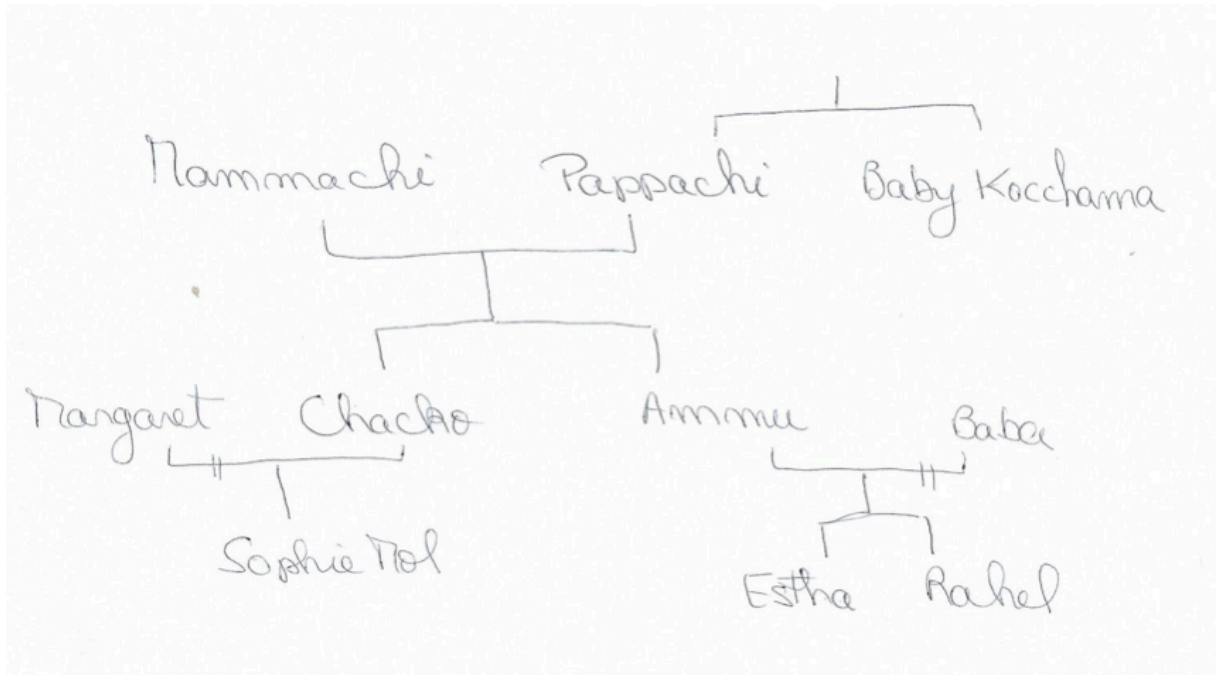 Mammachi Pappachi Baby Kocchama
Margaret Chacko Ammu Baba
Sophie Mol
Estha Rahel